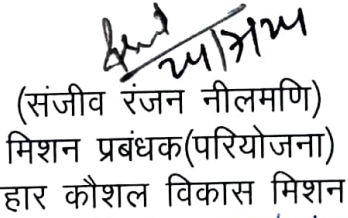 (संजीव रंजन नीलमणि)
मिशन प्रबंधक(परियोजना)
हार कौशल विकास मिशन